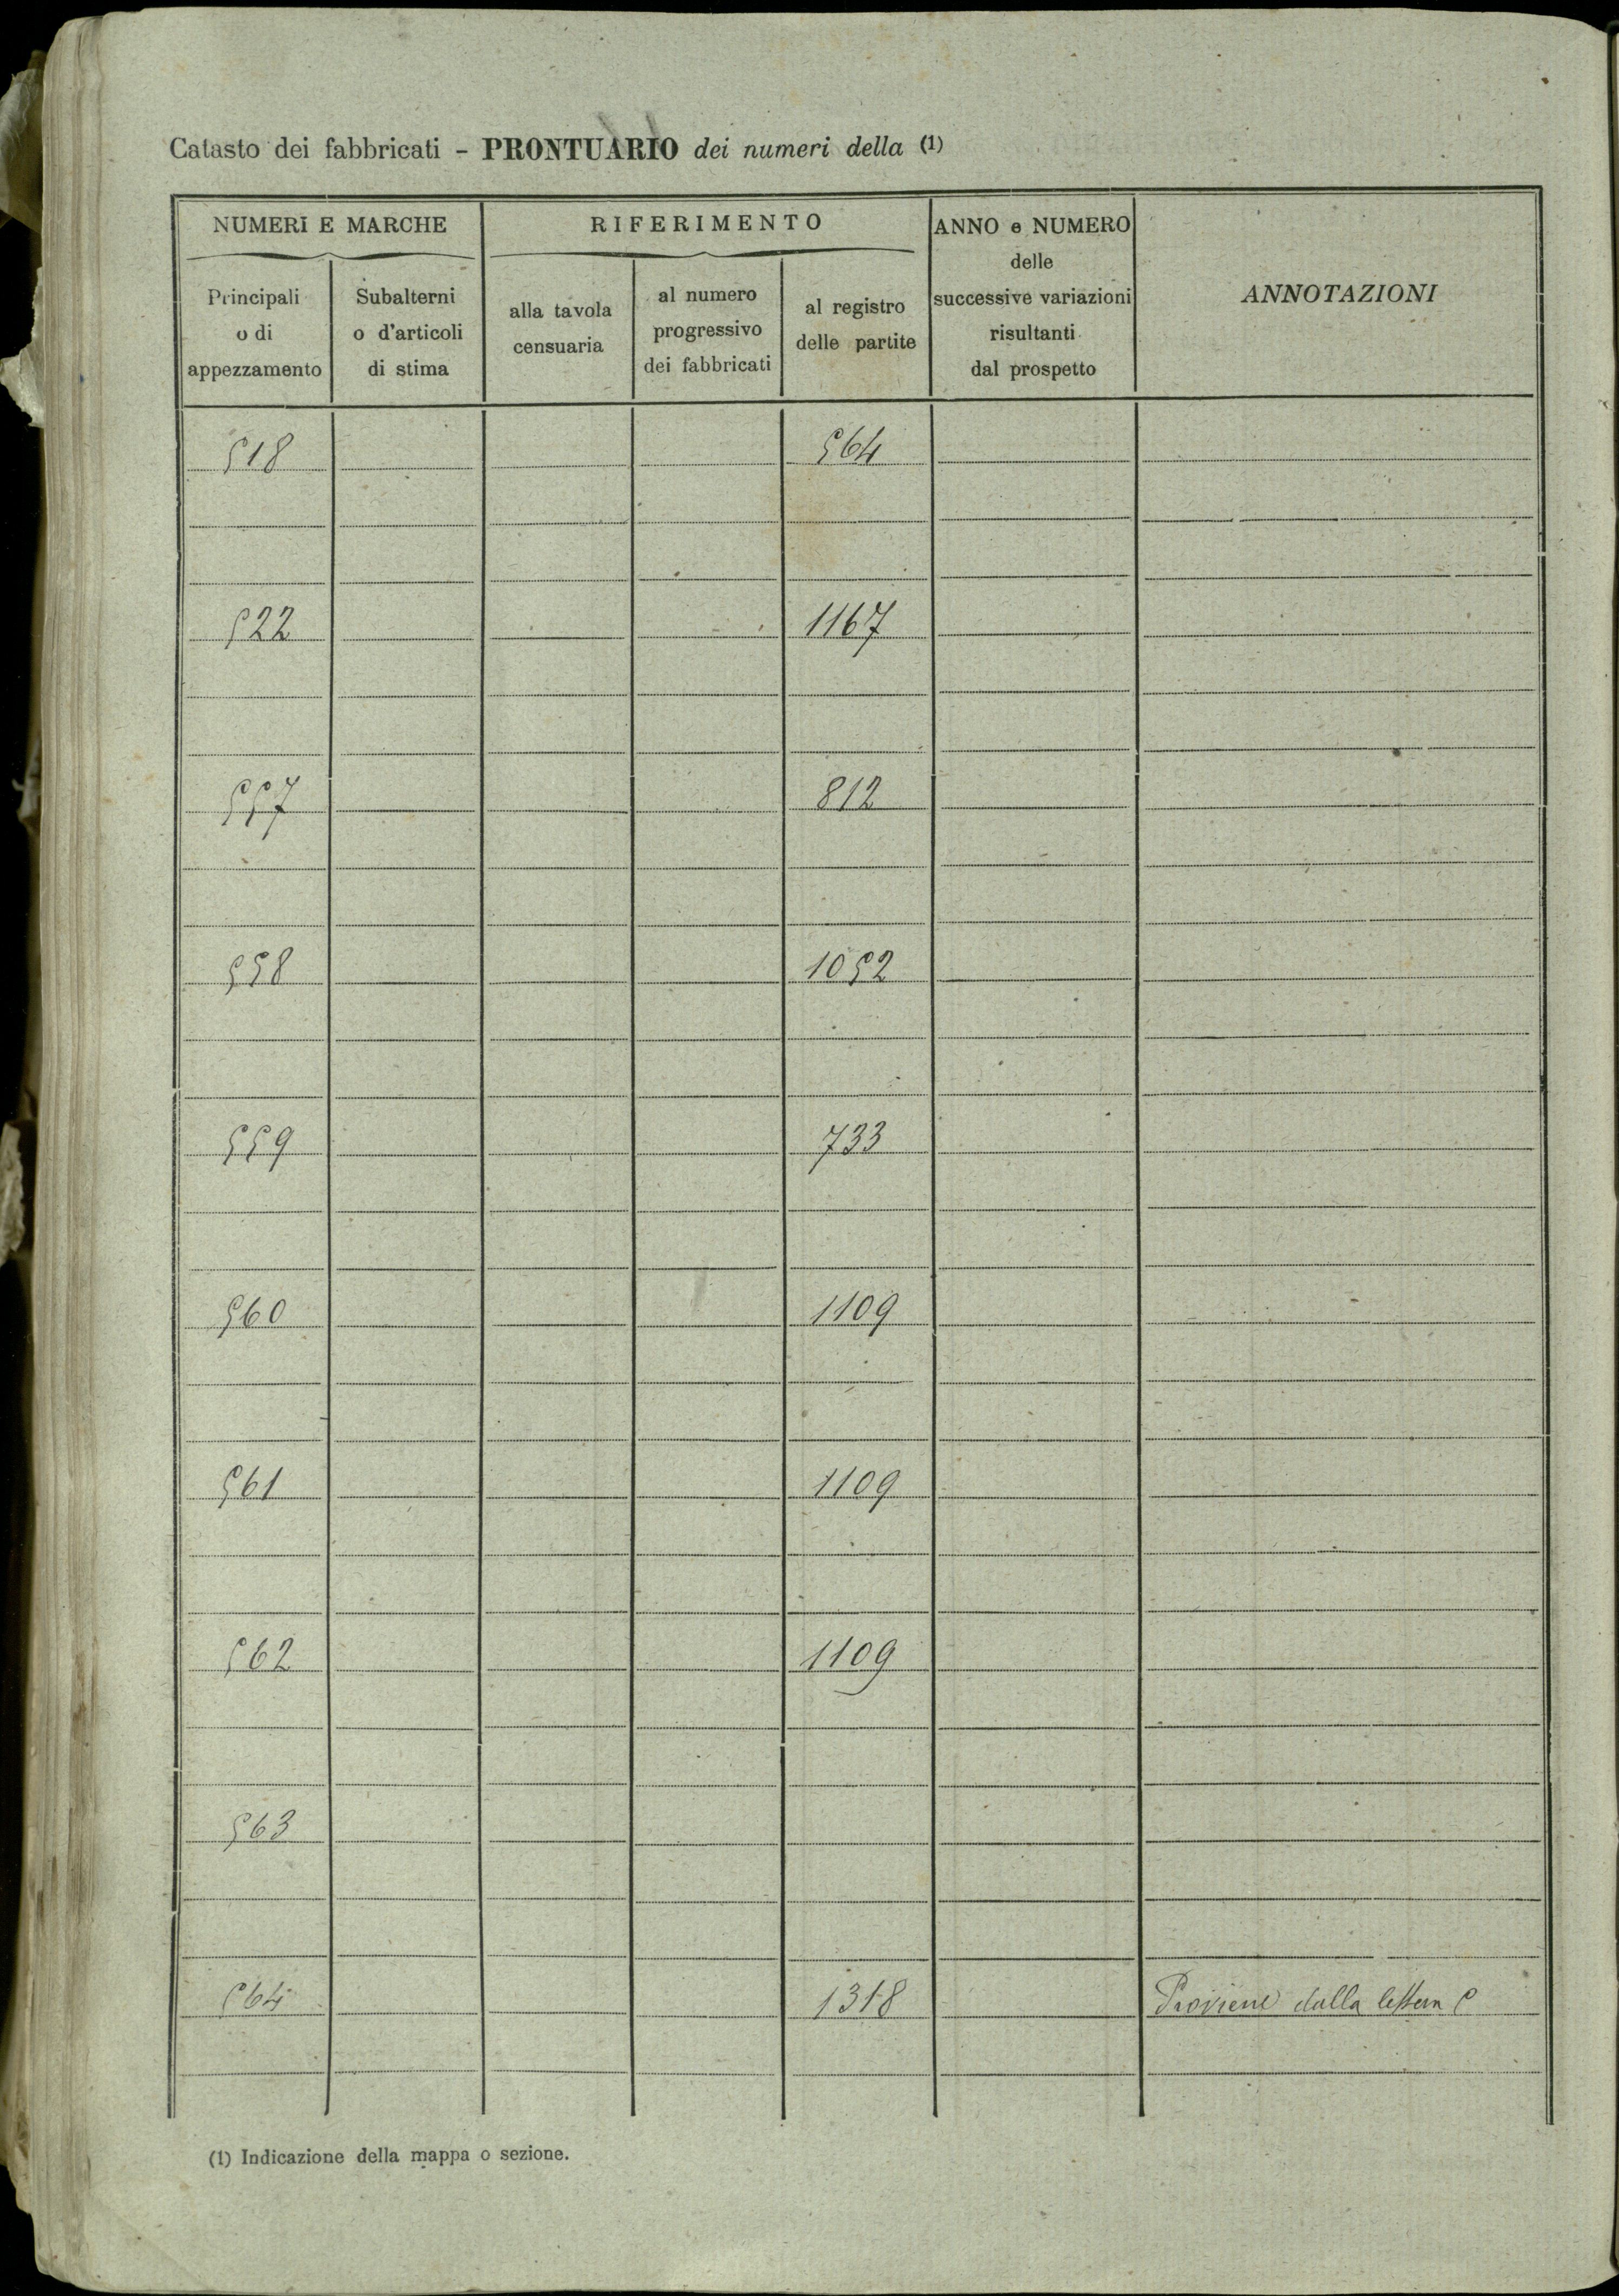 Catasto dei fabbricati - PRONTUARIO dei numeri della (1)
NUMERI E MARCHE
Principali
o di
appezzamento
Subalterni
o d'articoli
di stima
RIFERIMENTO
alla tavola
censuaria
al numero
progressivo
dei fabbricati
al registro
delle partite
ANNO e NUMERO
delle
successive variazioni
risultanti
dal prospetto
ANNOTAZIONI
518 564
522 1167
557 812
558 1052
559 733
560 1109
561 1109
562 1109
563
564 1318 Proviene dalla lettera C
(1) Indicazione della mappa o sezione.